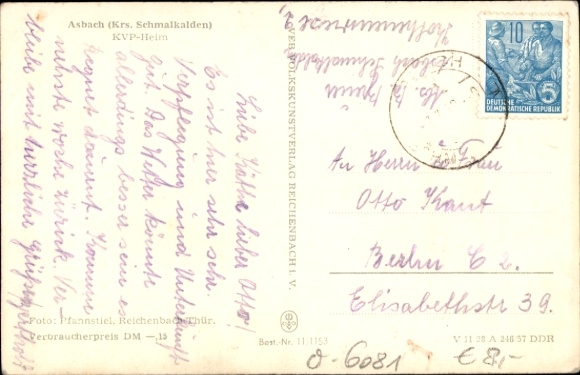 Asbach (Krs. Schmalkalden)
KVP-Heim
Liebe Käthe lieber Otto!
Es ist hier sehr sehr
Verpflegung und Unterkunft
gut. Das Wetter könnte
allerdings besser sein es
regnet dauernd. Komme
nächste Woche zurück. Ver-
bleibe mit herzliche Grüße
Foto: Pfannstiel, Reichenbach/Thür.
Verbraucherpreis DM —.15
VEB VOLKSKUNSTVERLAG REICHENBACH I. V.
Best.-Nr. 11 1153
Asbach Schmalkalden
10
5
DEUTSCHE
DEMOKRATISCHE REPUBLIK
An Herrn & Frau
Otto Kant
Berlin C 2.
Elisabethstr 39.
V 11 28 A 246/57 DDR
0-6081 € 8,-